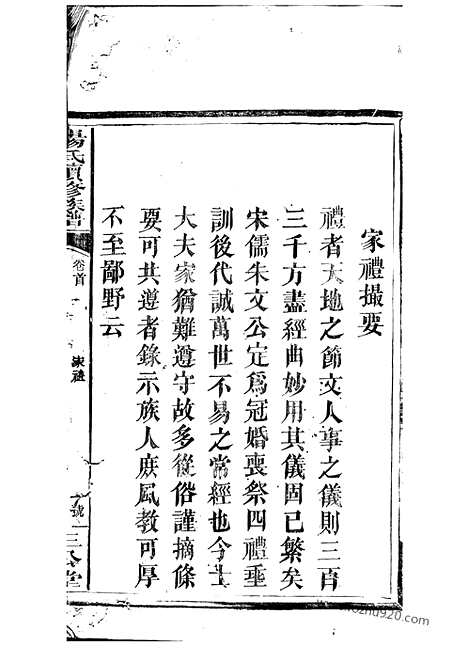 家禮撮要
禮者天地之節文人事之儀則三百
三千方盡經曲妙用其儀固已繁矣
宋儒朱文公定爲冠婚喪祭四禮垂
訓後代誠萬世不易之常經也今士
大夫家猶難遵守故多從俗謹摘條
要可共遵者錄示族人庶風教可厚
不至鄙野云
楊氏續修族譜
卷首
家禮
號
三公堂
mozhu920.com